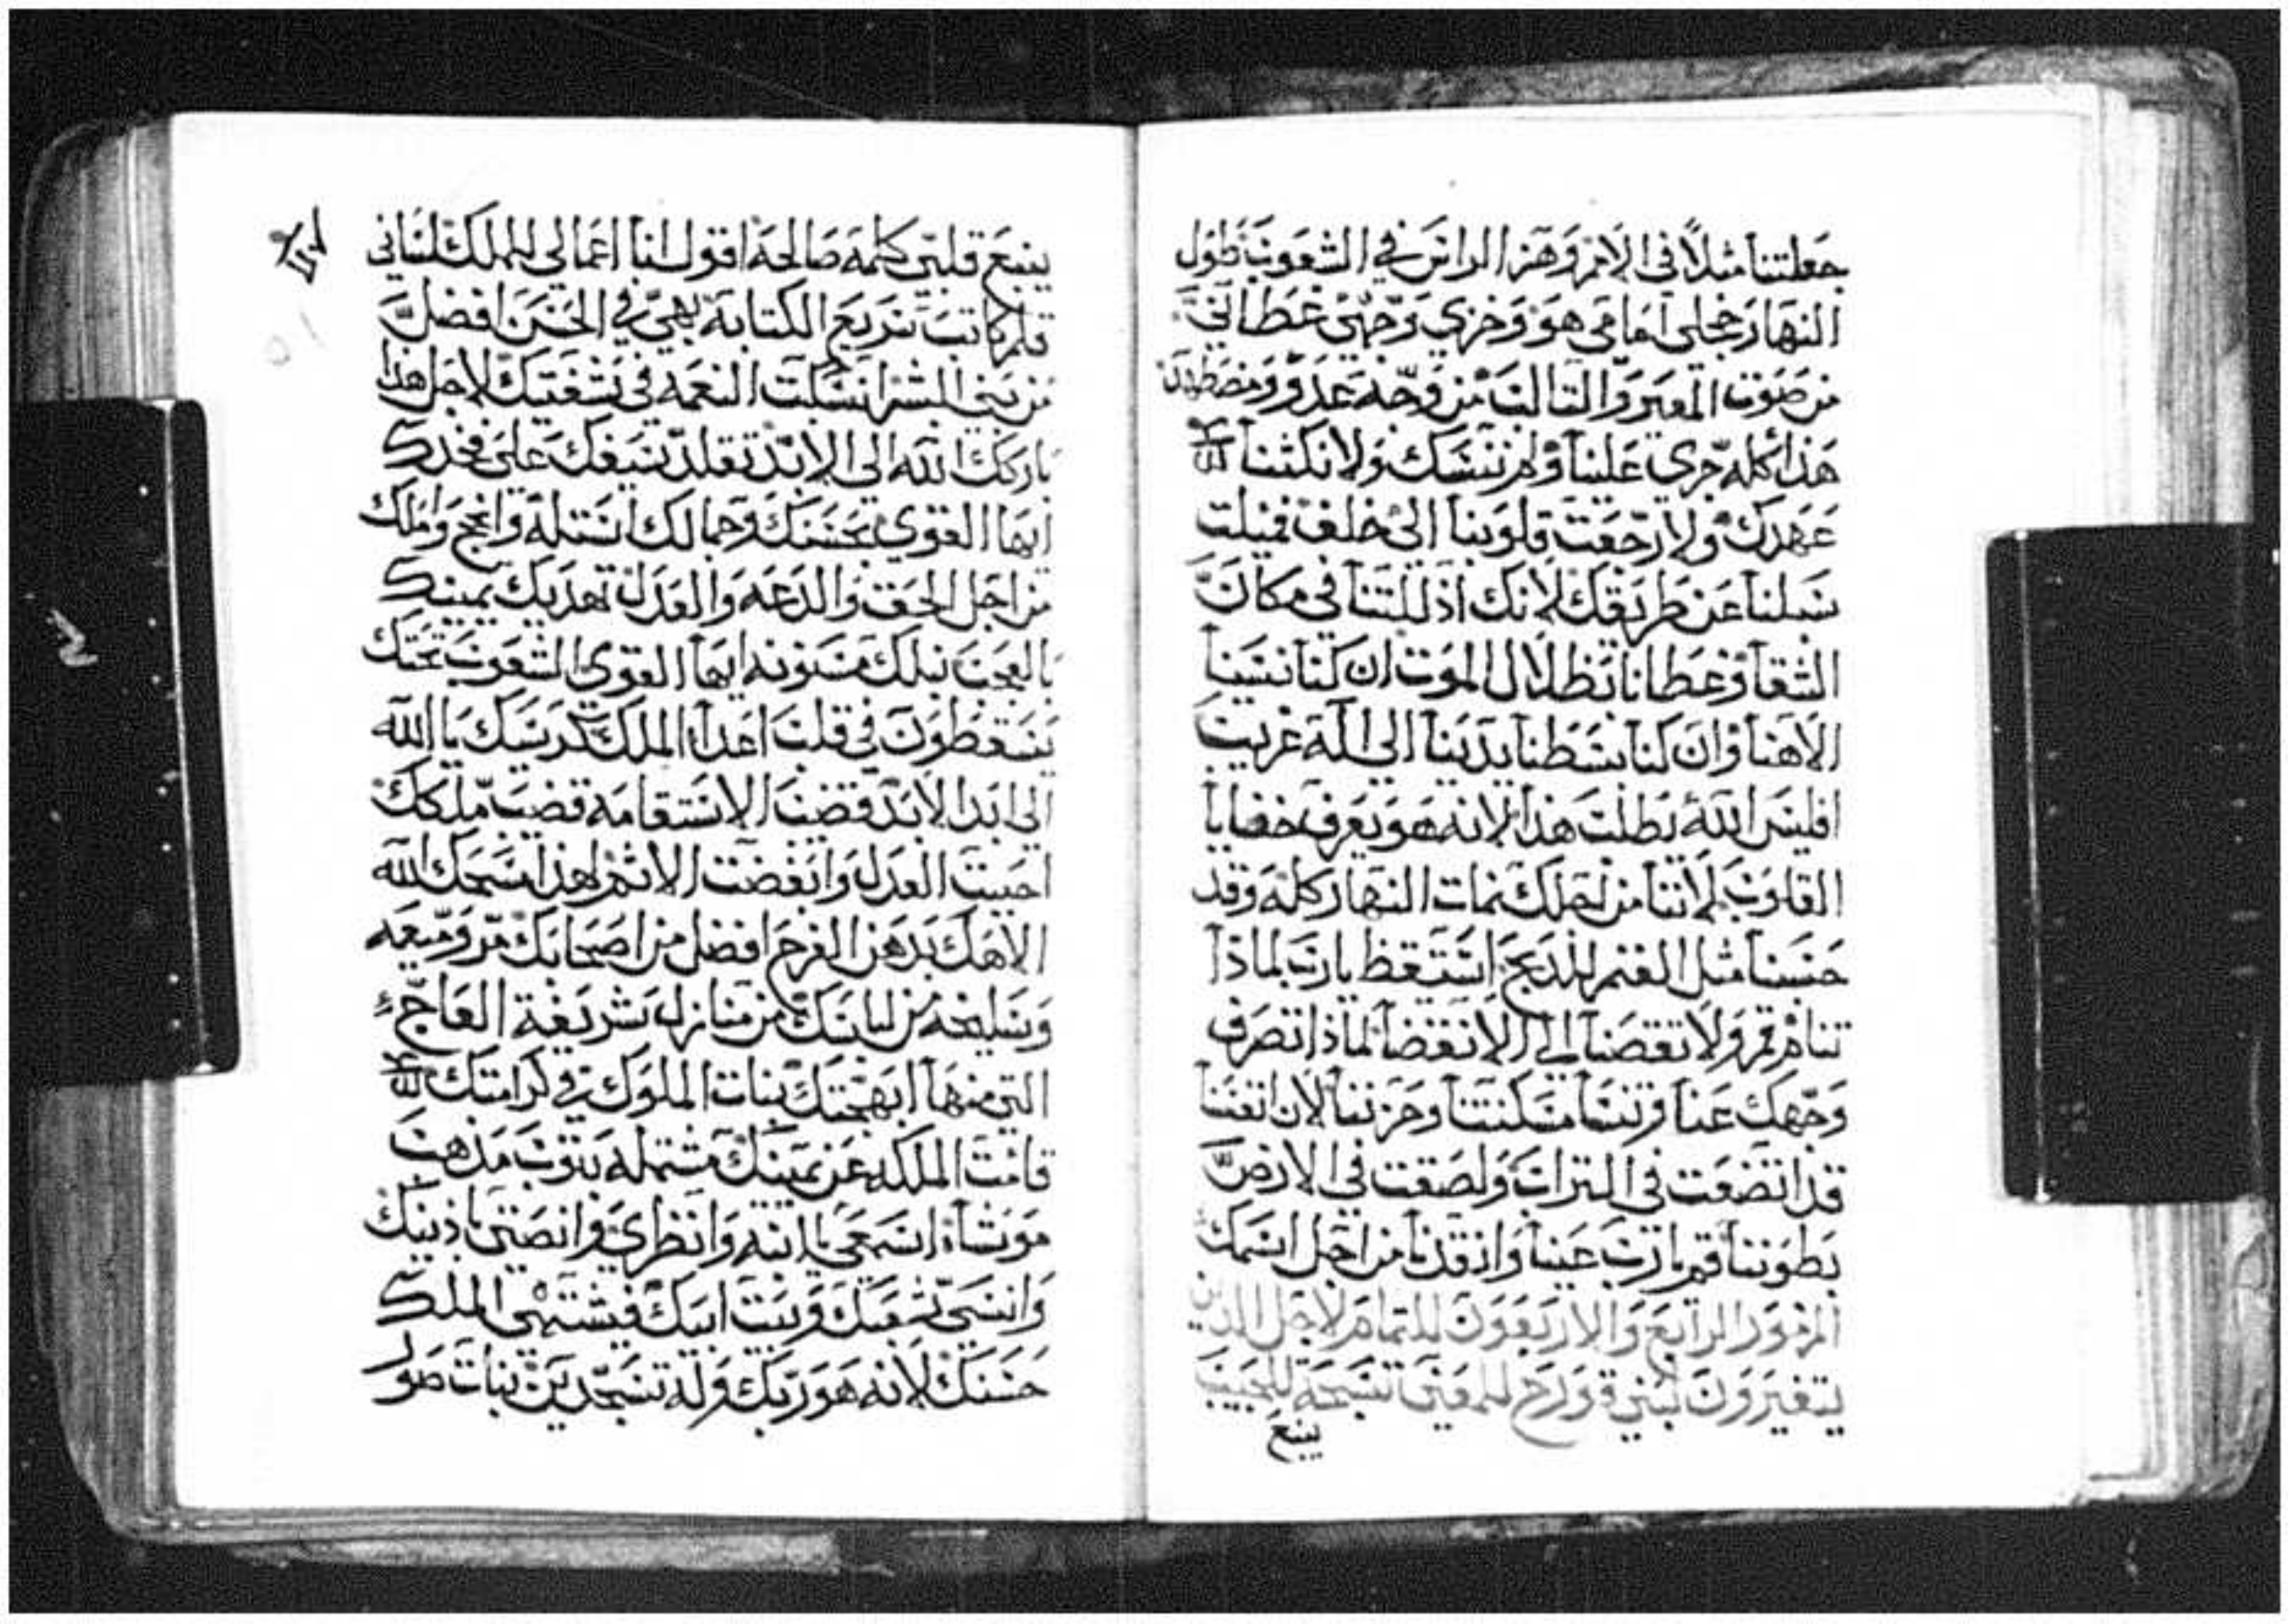 جعلتنا مثلاً في الامم وهز الراس في الشعوب طول
النهار خجلي امامي هو وخزي وجهي غطاني
من صوت المعير والتالب من وجه عدو ومضطهد
هذا كله جرى علينا ولم ننسك ولا نكثنا
عهدك ولا رجعت قلوبنا الى خلف فميلت
سبلنا عن طريقك لانك اذللتنا في مكان
الشقا وغطانا بظلال الموت ان كنا نسينا
الاهنا وان كنا بسطنا يدينا الى اله غريب
افليس الله يطلب هذا لانه هو يعرف خفايا
القلوب لاننا من اجلك نمات النهار كله وقد
حسبنا مثل الغنم للدبح استيقظ يا رب لماذا
تنام قم ولا تقصنا الى الانقضا لماذا تصرف
وجهك عنا وتنسا مسكنتنا وحزننا لان انفسنا
قد اتضعت في التراب ولصقت في الارض
بطوننا قم يا رب عينا وانقذنا من اجل اسمك
المزمور الرابع والاربعون للتمام لاجل الدين
يتغيرون لبني قورح للمعنى تسبحة للحبيب
ينبع
ينبع قلبي كلمة صالحة اقول انا اعمالي للملك لساني
قلم كاتب سريع الكتابة بهي في الحسن افضل
من بني البشر انسكبت النعمه في شفتيك لاجل هذا
باركك الله الى الابد تقلد سيفك على فخدك
ايها القوي بحسنك وجمالك استله وانجح واملك
من اجل الحق والدعه والعدل تهديك يمينك
بالعجب نبلك مسنونه ايها القوي الشعوب تحتك
يسقطون في قلب اعدا الملك كرسيك يا الله
الى ابد الابد قضيب الاستقامة قضيب ملكك
احببت العدل وابغضت الاثم لهذا مسحك الله
الاهك بدهن الفرح افضل من اصحابك مر وميعه
وسليخه من لباسك من منازل شريفة العاج
التي منها ابهجتك بنات الملوك في كرامتك
قامت الملكه عن يمينك مشتمله بثوب مذهب
موشاه اسمعي يا ابنه وانظري وانصتي باذنيك
وانسي شعبك وبيت ابيك فيشتهي الملك
حسنك لانه هو ربك وله تسجدين بنات صور